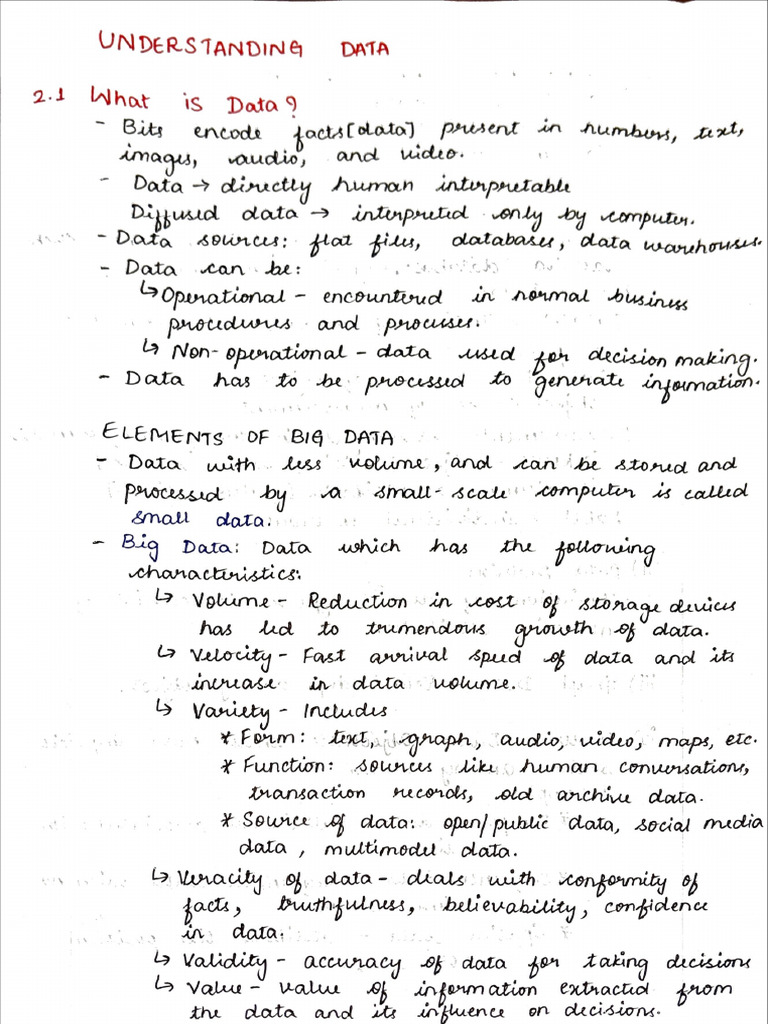 UNDERSTANDING DATA
2.1 What is Data?
- Bits encode facts[data] present in numbers, text,
images, audio, and video.
- Data → directly human interpretable
Diffused data → interpreted only by computer.
- Data sources: flat files, databases, data warehouses.
- Data can be:
↳ Operational - encountered in normal business
procedures and processes.
↳ Non-operational - data used for decision making.
- Data has to be processed to generate information.
ELEMENTS OF BIG DATA
- Data with less volume, and can be stored and
processed by a small-scale computer is called
small data.
- Big Data: Data which has the following
characteristics:
↳ Volume - Reduction in cost of storage devices
has led to tremendous growth of data.
↳ Velocity - Fast arrival speed of data and its
increase in data volume.
↳ Variety - Includes
* Form: text, graph, audio, video, maps, etc.
* Function: sources like human conversations,
transaction records, old archive data.
* Source of data: open/public data, social media
data, multimodel data.
↳ Veracity of data - deals with conformity of
facts, truthfulness, believability, confidence
in data.
↳ Validity - accuracy of data for taking decisions
↳ Value - value of information extracted from
the data and its influence on decisions.